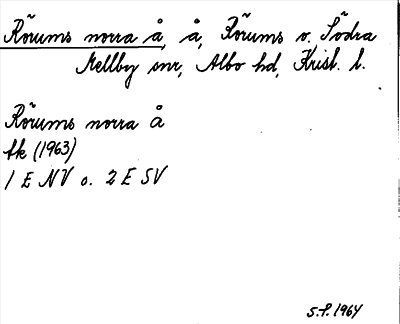 Rörums norra å, å, Rörums o. Södra
Mellby snr, Albo hd, Krist. l.
Rörums norra å
tk (1963)
1 E NV o. 2 E SV
S.P. 1964